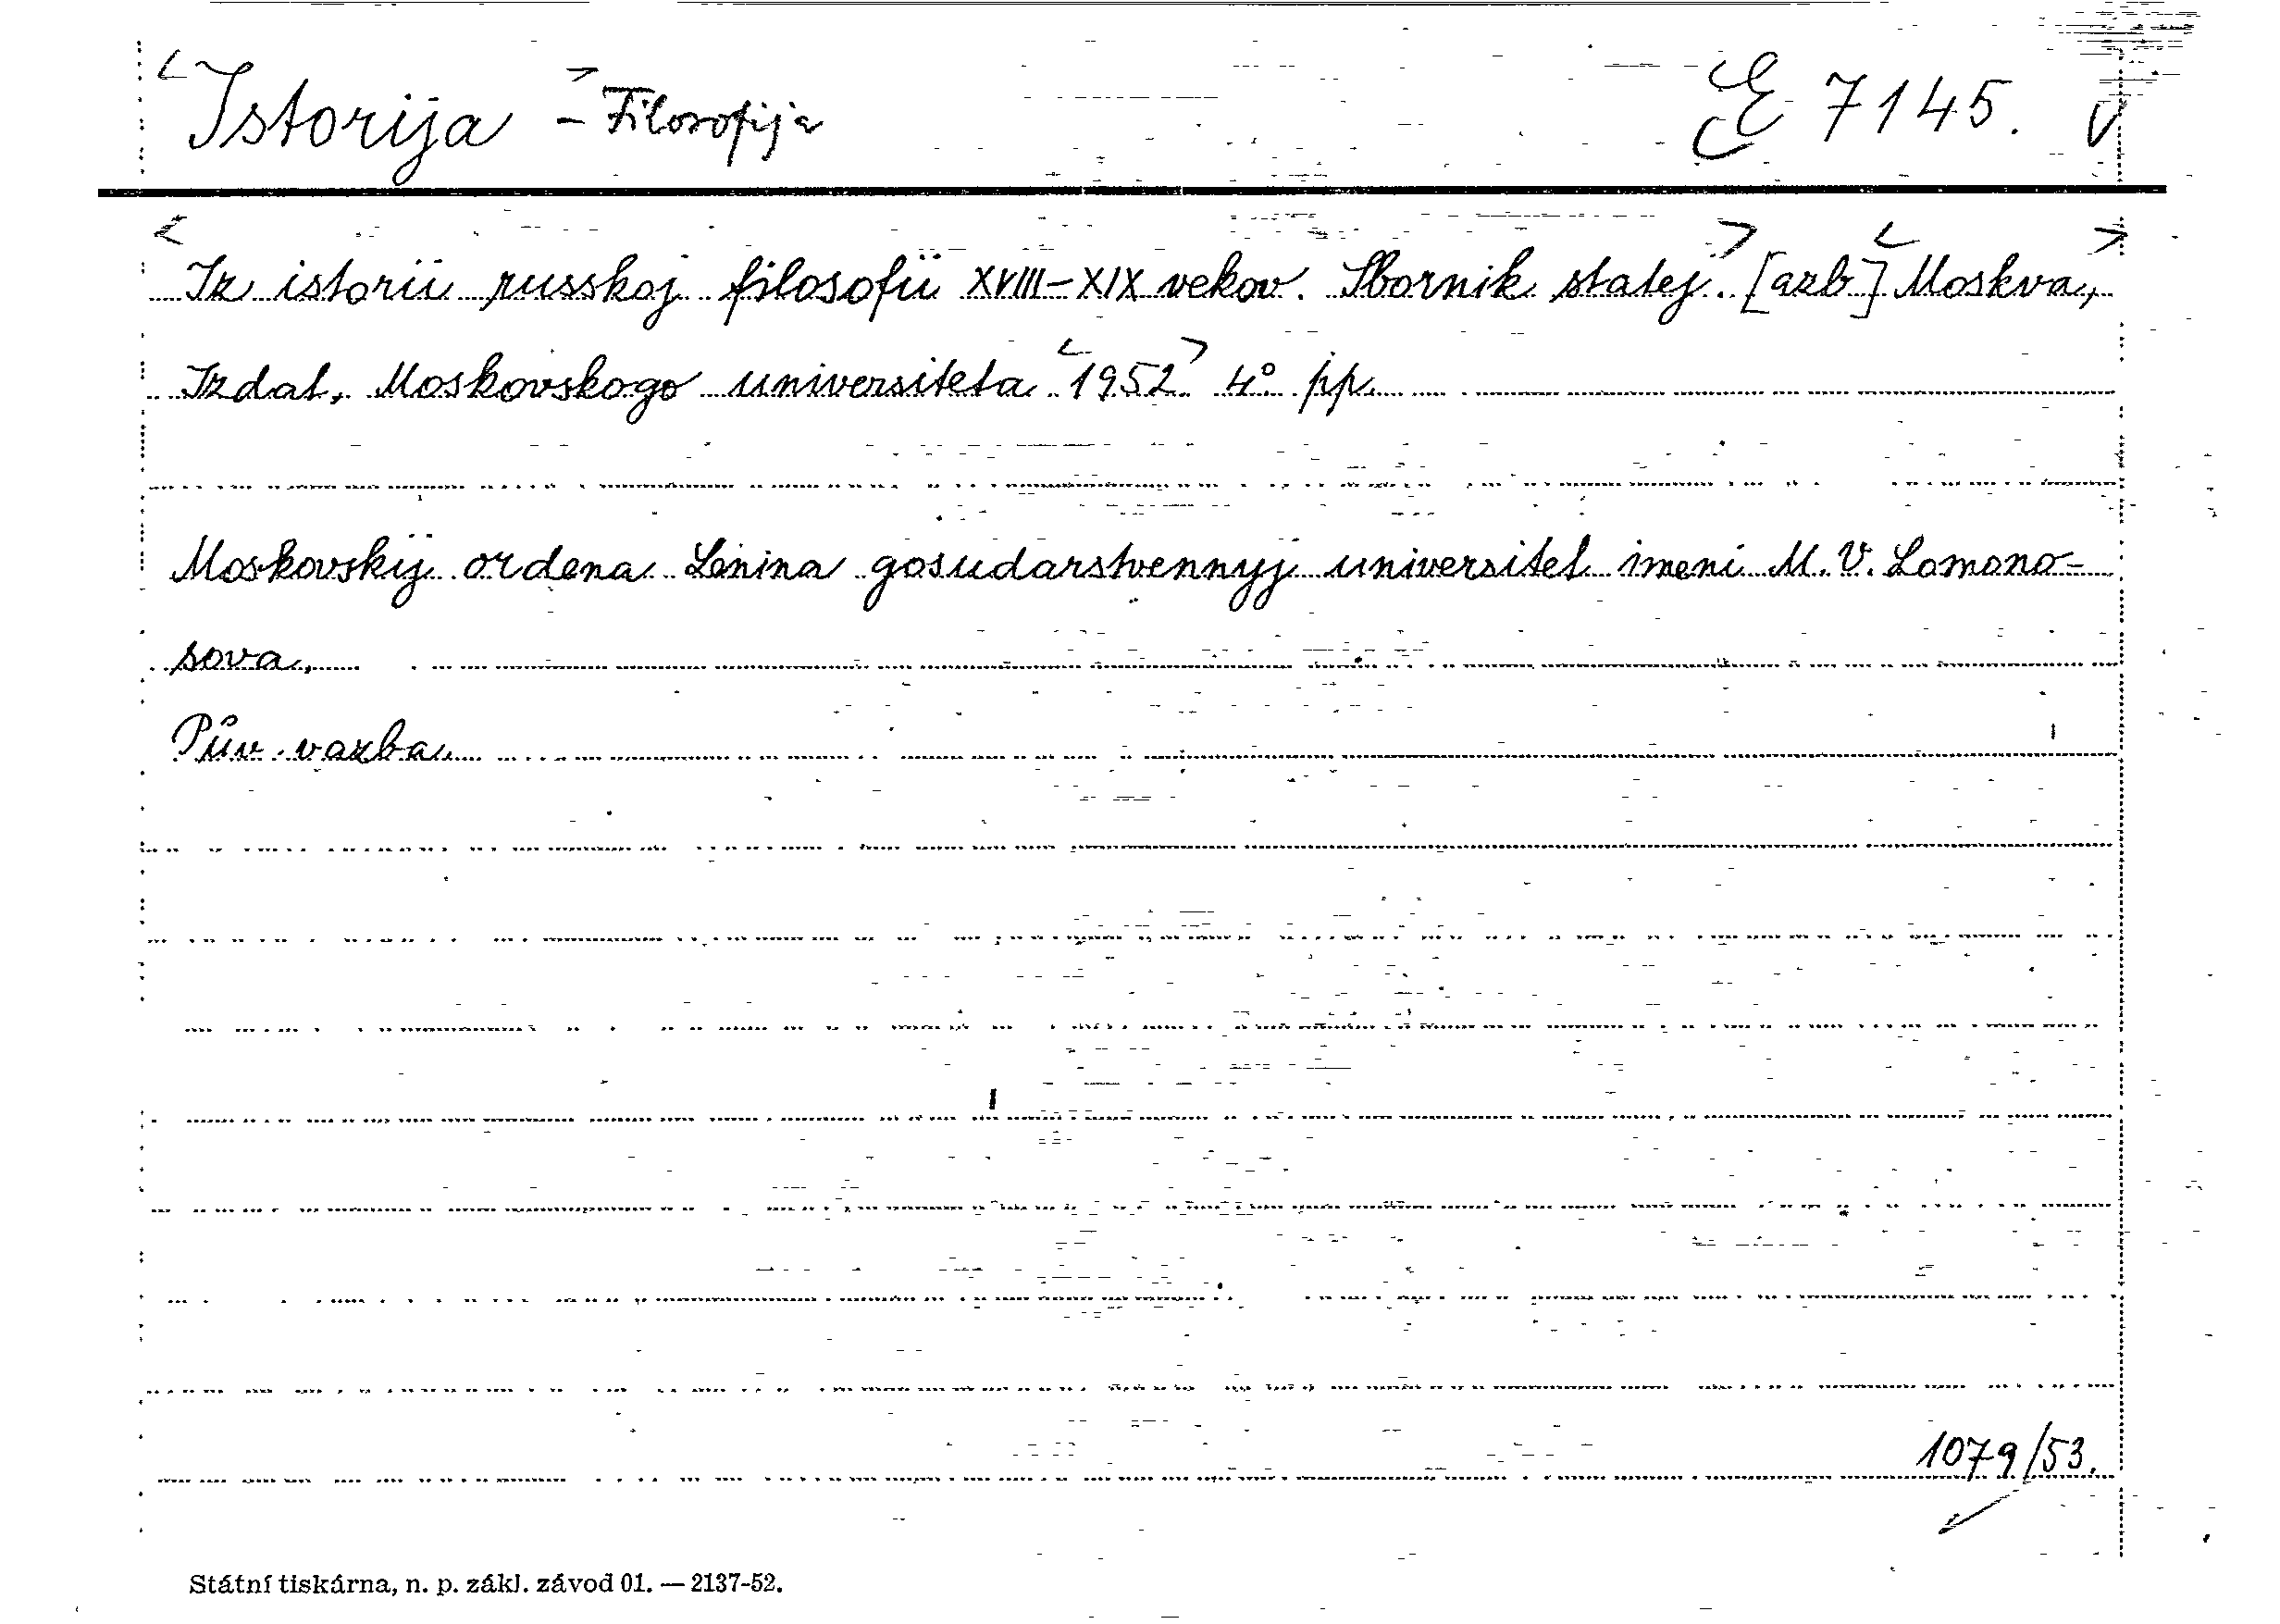 <Istorija> - Filosofija E 7145. v
<Iz istorii russkoj filosofii XVIII-XIX vekov. Sbornik statej.> [azb.] <Moskva,>
Izdat. Moskovskogo universiteta <1952> 4° pp.
Moskovskij ordena Lenina gosudarstvennyj universitet imeni M. V. Lomono-
sova.
Pův. vazba.
1079/53.
Státní tiskárna, n. p. zákl. závod 01. — 2137-52.